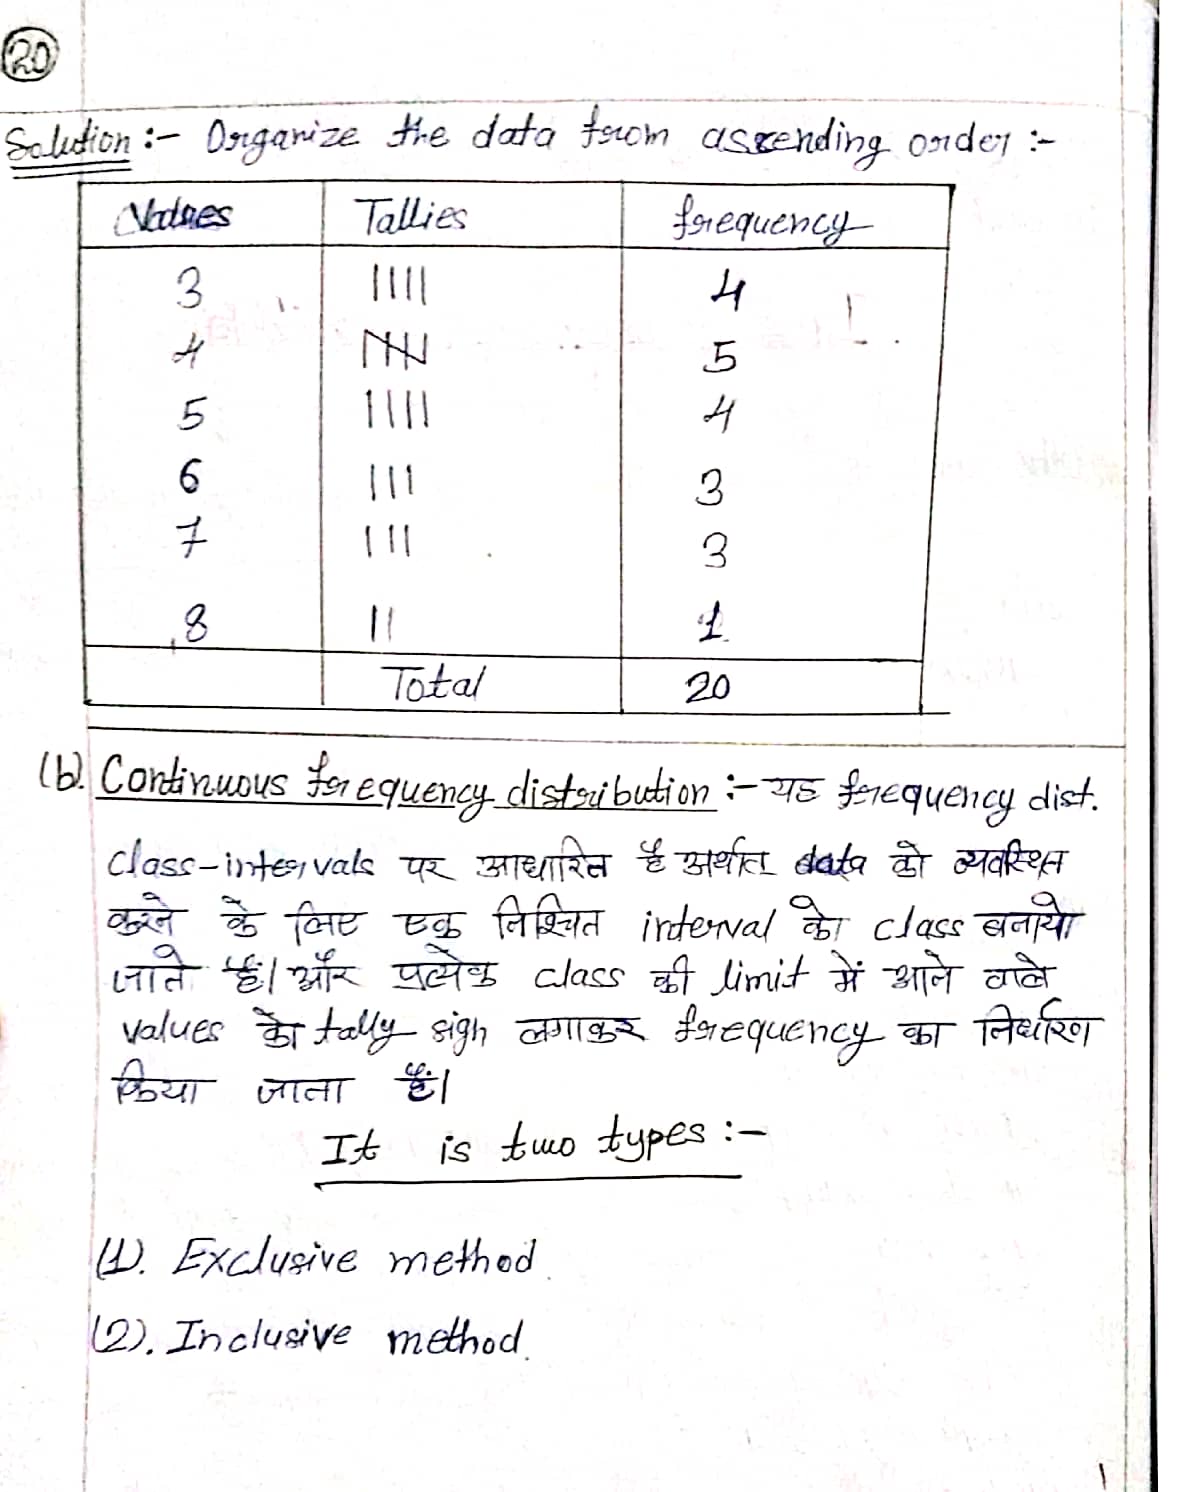 20
Solution :- Organize the data from ascending order :-
Values Tallies frequency
3 |||| 4
4 𝍸 5
5 |||| 4
6 ||| 3
7 ||| 3
8 || 1
Total 20
(b). Continuous frequency distribution :- यह frequency dist.
class-intervals पर आधारित है अर्थात data को व्यवस्थित
करने के लिए एक निश्चित interval का class बनाये
जाते हैं। और प्रत्येक class की limit में आने वाले
values को tally sigh लगाकर frequency का निर्धारण
किया जाता हैं।
It is two types :-
(1). Exclusive method.
(2). Inclusive method.